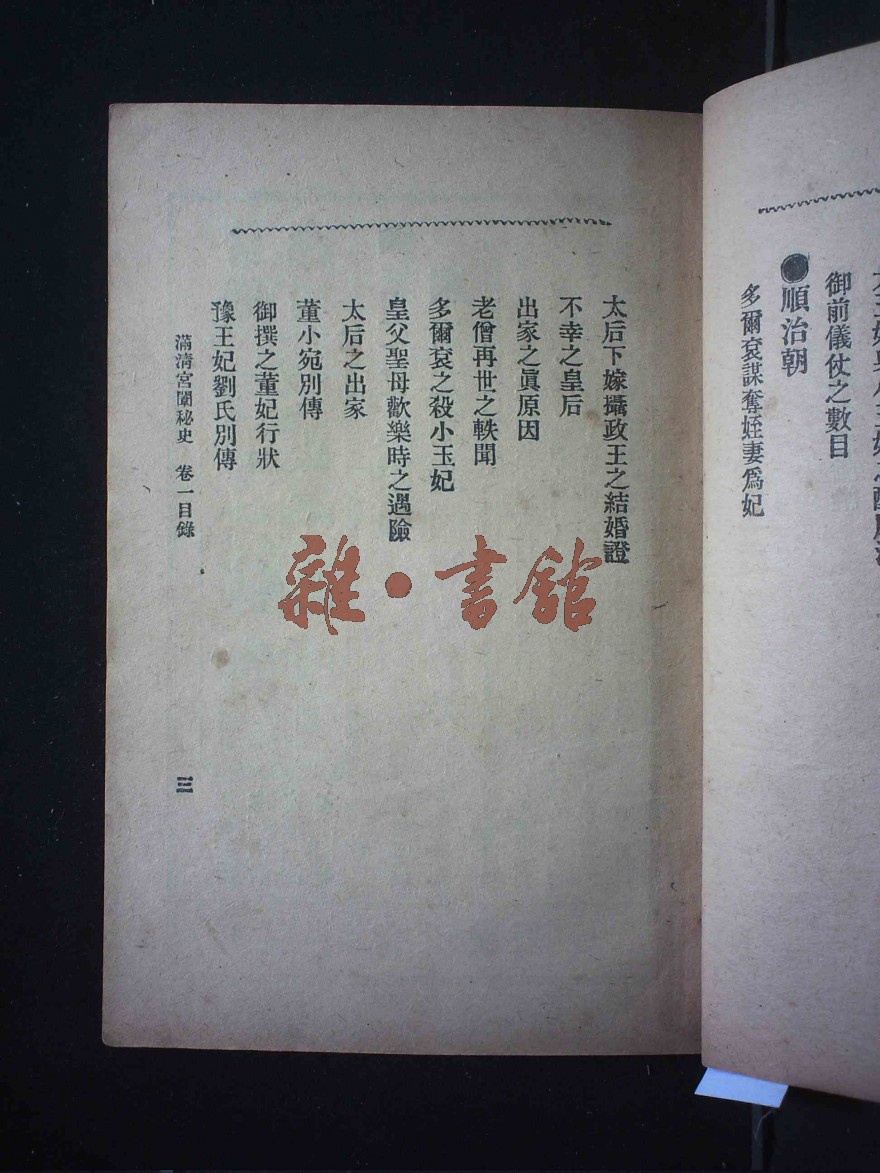 御前儀仗之數目
●順治朝
多爾袞謀奪姪妻爲妃
太后下嫁攝政王之結婚證
不幸之皇后
出家之眞原因
老僧再世之軼聞
多爾袞之殺小玉妃
皇父聖母歡樂時之遇險
太后之出家
董小宛別傳
御撰之董妃行狀
豫王妃劉氏別傳
滿清宮闈秘史 卷一目錄
三
雜·書館